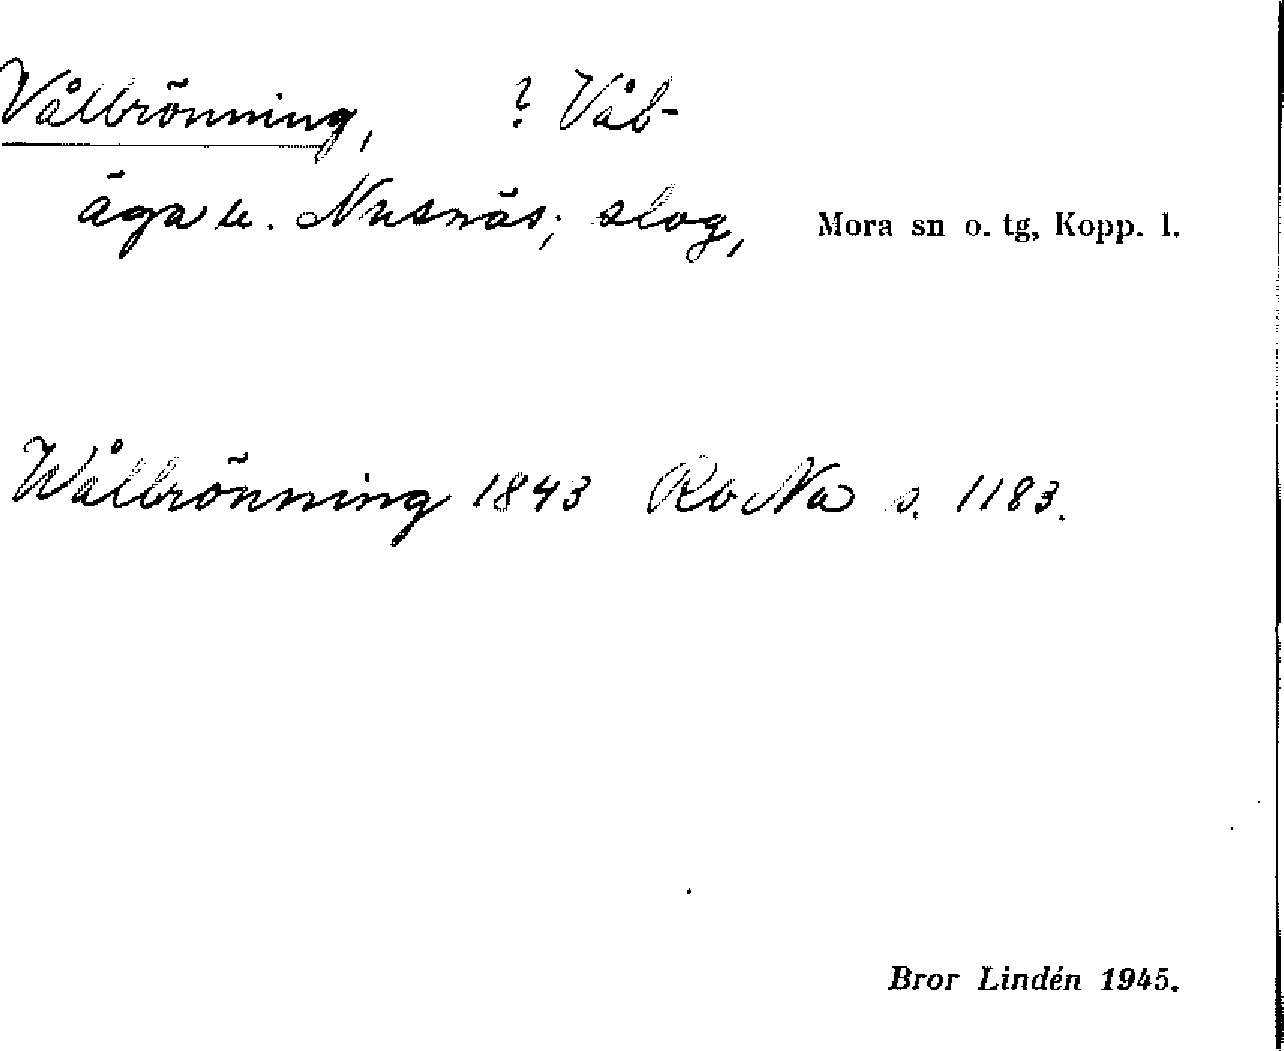 Vålbrönning, ? Våb-
äga u. Nusnäs; slog, Mora sn o. tg, Kopp. l.
Wålbrönning 1843 Rb Na s. 1183.
Bror Lindén 1945.